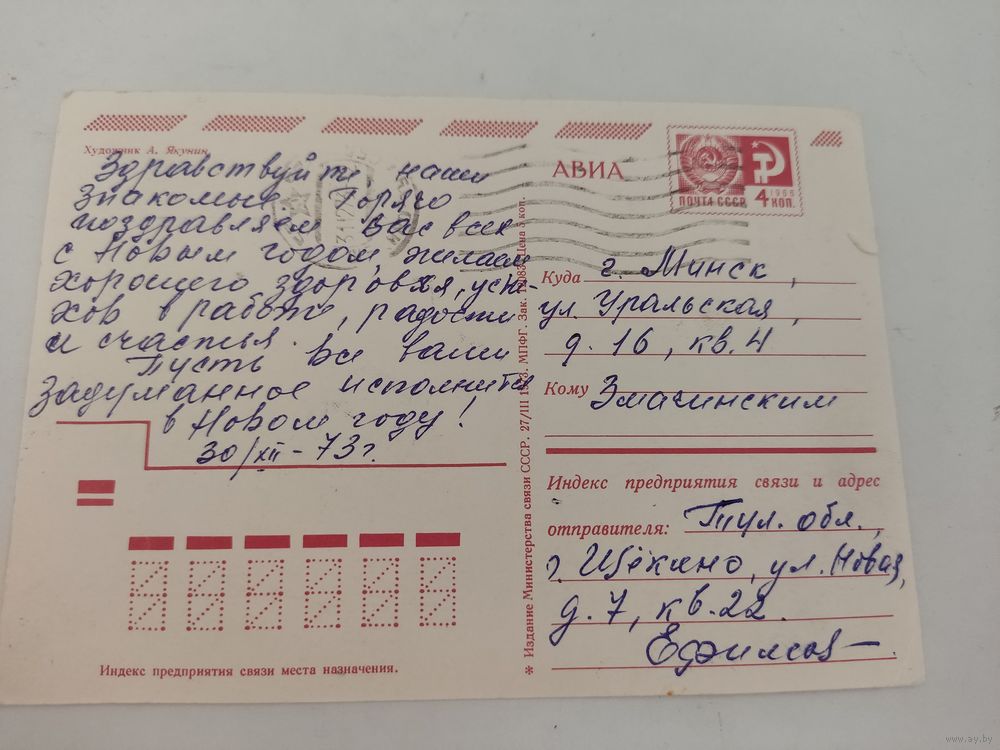 Художник А. Якунин
Здравствуйте, наши
знакомые. Горячо
поздравляем Вас всех
с Новым годом, желаем
хорошего здоровья, успе-
хов в работе, радости
и счастья.
Пусть все ваши
задуманное исполнится
в Новом году!
30/XII-73 г.
Индекс предприятия связи места назначения.
* Издание Министерства связи СССР. 27/III 1973. МПФГ. Зак. Цена 5 коп.
АВИА
ПОЧТА СССР
1966
4 КОП.
Куда г. Минск,
ул. Уральская,
д. 16, кв. 4
Кому Змачинским
Индекс предприятия связи и адрес
отправителя: Тул. обл.,
г. Щёкино, ул. Новая,
д. 7, кв. 22.
Ефимов
www.ay.by